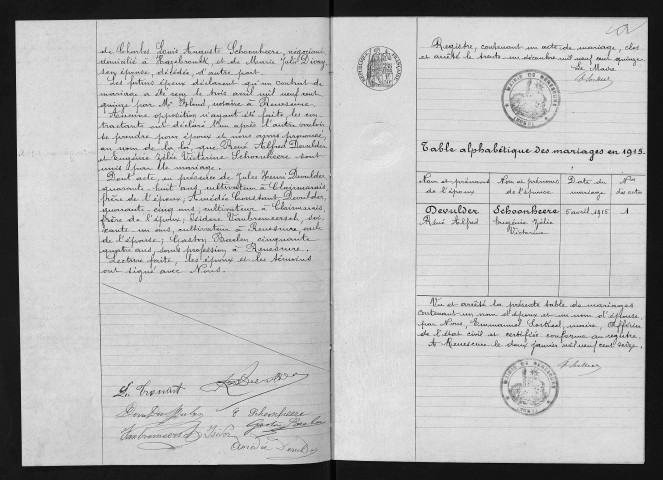 de Charles Louis Auguste Schoonheere, négociant,
domicilié à Hazebrouck et de Marie Julie Divay,
son épouse, décédée, d'autre part.
Les futurs époux déclarent qu'un contrat de
mariage a été reçu le trois avril mil neuf cent
quinze par Me notaire à Renescure.
Aucune opposition n'ayant été faite, les con-
tractants ont déclaré l'un après l'autre vouloir
se prendre pour époux et nous avons prononcé,
au nom de la loi, que René Alfred Devulder
et Eugénie Zélie Victorine Schoonheere sont
unis par le mariage.
Dont acte en présence de Jules Henri Devulder,
quarante-huit ans, cultivateur à Clairmarais,
frère de l'époux; Amédée Constant Devulder,
quarante-cinq ans, cultivateur à Clairmarais,
frère de l'époux; Isidore Vanbremeersch, soi-
xante-un ans, cultivateur à Renescure, oncle
de l'épouse; Gaston Baclen, cinquante
quatre ans, sans profession à Renescure.
Lecture faite, les époux et les témoins
ont signé avec Nous.
E Schoonheere
Devulder Jules
Gaston
Vanbremeersch Isidore
Amédée Devulder
REPUBLIQUE FRANCAISE
Registre, contenant un acte de mariage, clos
et arrêté le trente-un décembre mil neuf cent quinze.
Le Maire
MAIRIE DE RENESCURE
(NORD)
Table alphabétique des mariages en 1915.
Nom et prénoms de l'époux
Nom et prénoms de l'épouse
Date du mariage
Nos des actes
Devulder Schoonheere 5 avril 1915 1
René Alfred Eugénie Zélie
Victorine
Vu et arrêté la présente table de mariages
contenant un nom d'époux et un nom d'épouse,
par Nous, Emmanuel maire, Officier
de l'état civil et certifiée conforme au registre.
A Renescure le deux janvier mil neuf cent seize.
MAIRIE DE RENESCURE
(NORD)